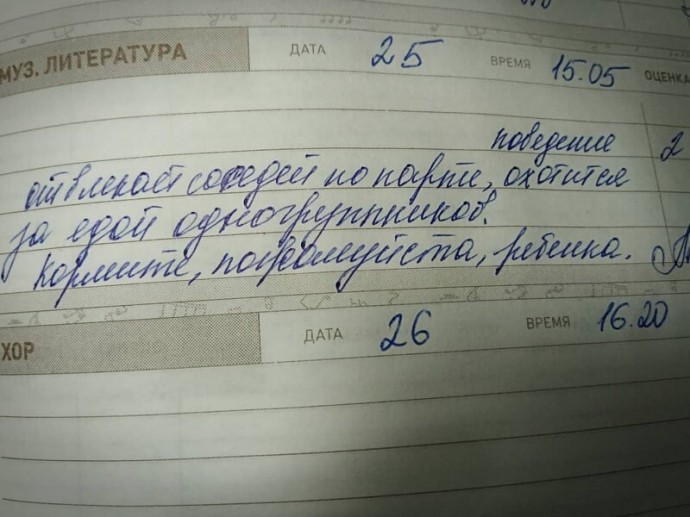 МУЗ. ЛИТЕРАТУРА ДАТА 25 ВРЕМЯ 15.05 ОЦЕНКА
поведение 2
отвлекает соседей по парти, охотится
за едой одногруппников.
Кормите, пожалуйста, ребенка.
ХОР ДАТА 26 ВРЕМЯ 16.20